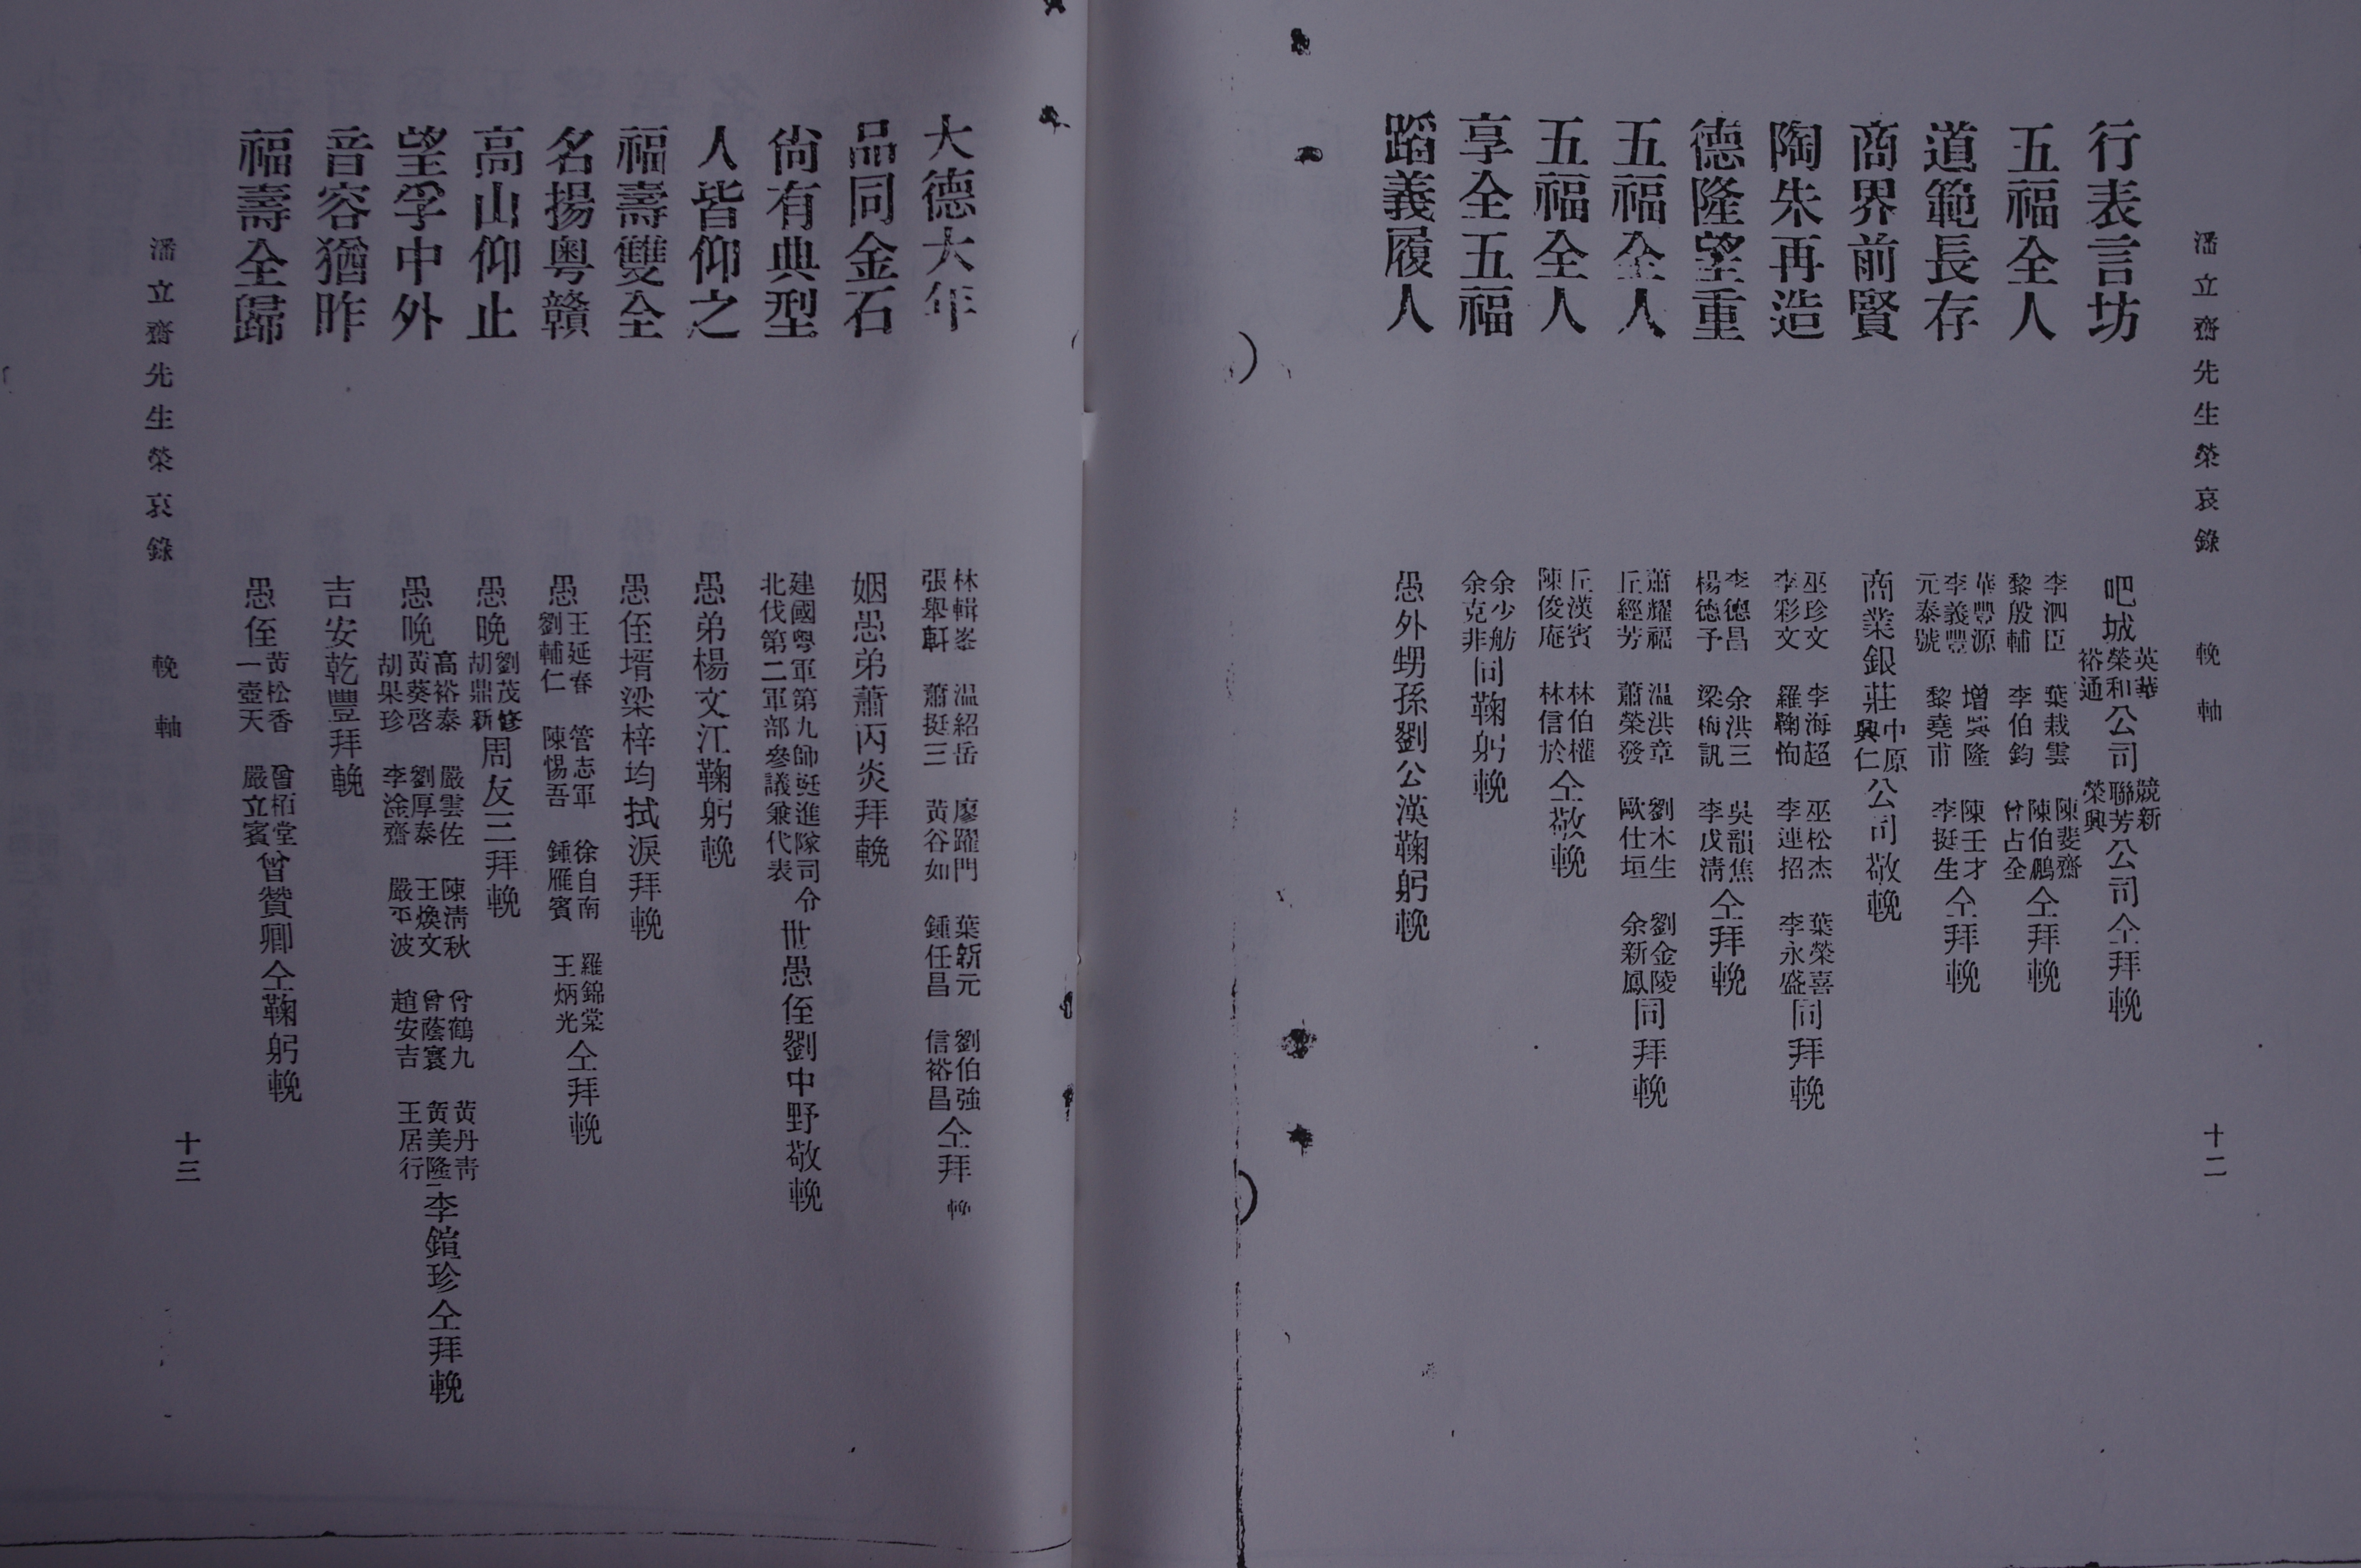 潘立齋先生榮哀錄　輓軸　十二
行表言坊　吧城英華榮和裕通公司競新聯芳榮興公司仝拜輓
五福全人　李泗臣　葉栽雲　陳斐齋　黎殷輔　李伯鈞　陳伯鵬　曾占全　仝拜輓
道範長存　華豐源　增興隆　陳壬才　李義豐　元泰號　黎堯甫　李挺生　仝拜輓
商界前賢　商業銀莊中原興仁公司敬輓
陶朱再造　巫珍文　李海超　巫松杰　葉榮喜　李彩文　羅鞠恂　李連招　李永盛　同拜輓
德隆望重　李德昌　余洪三　吳韻焦　楊德予　梁梅訊　李戊淸　仝拜輓
五福全人　蕭耀福　温洪章　劉木生　劉金陵　丘經芳　蕭榮發　歐仕垣　余新鳳　同拜輓
五福全人　丘漢賓　林伯權　陳俊庵　林信於　仝敬輓
享全五福　余少舫　余克非　同鞠躬輓
蹈義履人　愚外甥孫劉公漢鞠躬輓
大德大年　林輯峯　温紹岳　廖躍門　葉新元　劉伯強　張舉軒　蕭挺三　黃谷如　鍾任昌　信裕昌　仝拜輓
品同金石　姻愚弟蕭丙炎拜輓
尙有典型　建國粤軍第九師挺進隊司令　北伐第二軍部參議兼代表　世愚侄劉中野敬輓
人皆仰之　愚弟楊文江鞠躬輓
福壽雙全　愚侄壻梁梓均拭淚拜輓
名揚粤贛　愚王延春　管志軍　徐自南　羅錦棠　劉輔仁　陳惕吾　鍾雁賓　王炳光　仝拜輓
高山仰止　愚晚劉茂修　胡鼎新　周友三拜輓
望孚中外　愚晚高裕泰　嚴雲佐　陳淸秋　曾鶴九　黃丹靑　黃葵啓　劉厚泰　王煥文　曾蔭寰　黃美隆　胡果珍　李淦齋　嚴平波　趙安吉　王居行　李鎧珍仝拜輓
音容猶昨　吉安乾豐拜輓
福壽全歸　愚侄黃松香　曾栢堂　一壺天　嚴立賓　曾贊卿仝鞠躬輓
潘立齋先生榮哀錄　輓軸　十三